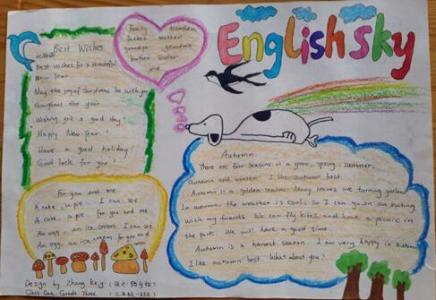 English sky
Best Wishes
Best wishes for a beautiful
New Year.
May the joy of Christmas be with you
throughout the year
Wishing you a good day
Happy New Year!
Have a good holiday!
Good luck for you
family
father mother
grandpa grandma
brother sister
me
For you and me
A cake, a pie. I can see
A cake, a pie. For you and me
An egg, an ice cream. I can see
An egg, an ice cream for you and me
Autumn
There are four seasons in a year, spring, summer,
autumn and winter. I like autumn best.
Autumn is a golden season. Many leaves are turning yellow.
In autumn the weather is cool. So I can go on an outing
with my friends. We can fly kites and have a picnic in
the park. We will have a good time.
Autumn is a harvest season. I am very happy in autumn.
I like autumn best. What about you?
Design by Zhang
Class One, Grade Three